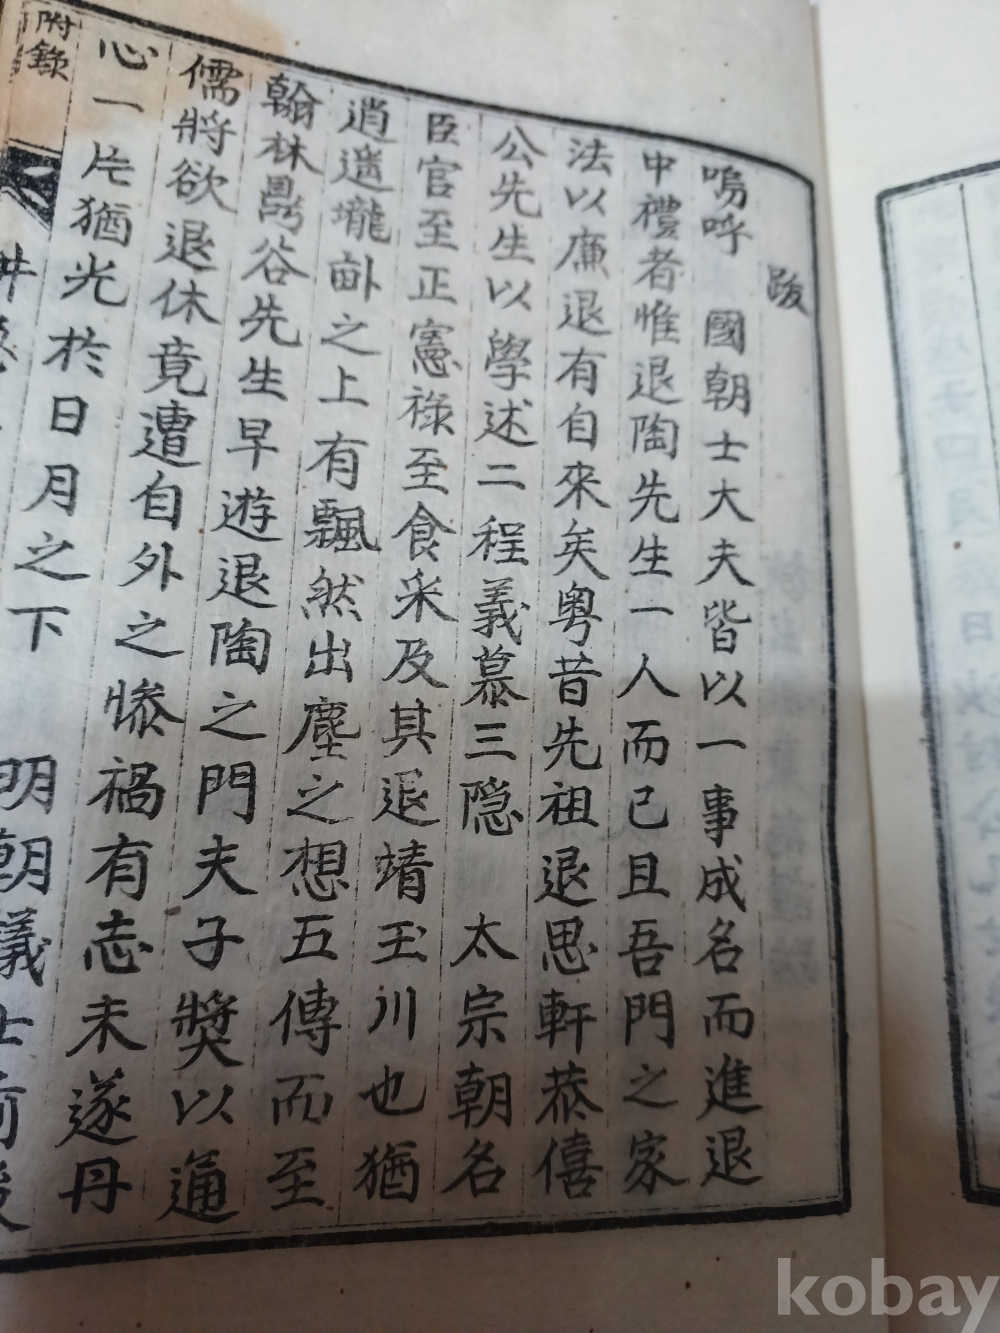 跋
嗚呼 國朝士大夫皆以一事成名而進退
中禮者惟退陶先生一人而已且吾門之家
法以廉退有自來矣粤昔先祖退思軒恭僖
公先生以學述二程義慕三隐 太宗朝名
臣官至正憲祿至食采及其退靖玉川也猶
逍遥壠畝之上有飄然出塵之想五傳而至
翰林暠谷先生早遊退陶之門夫子獎以通
儒將欲退休竟遭自外之慘禍有志未遂丹
心一片猶光於日月之下 明朝義士前後
附錄
kobay